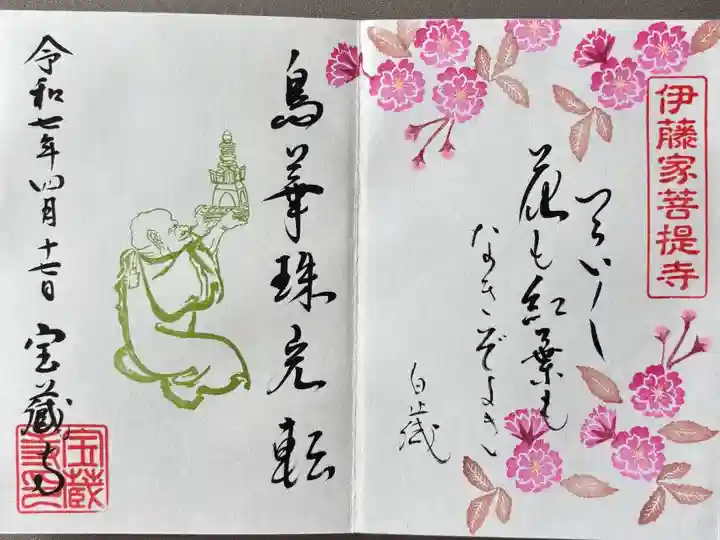 伊藤家菩提寺
花も紅葉も
なきぞよき
白歳
鳥華珠 転
令和七年四月十七日 宝蔵寺
宝蔵